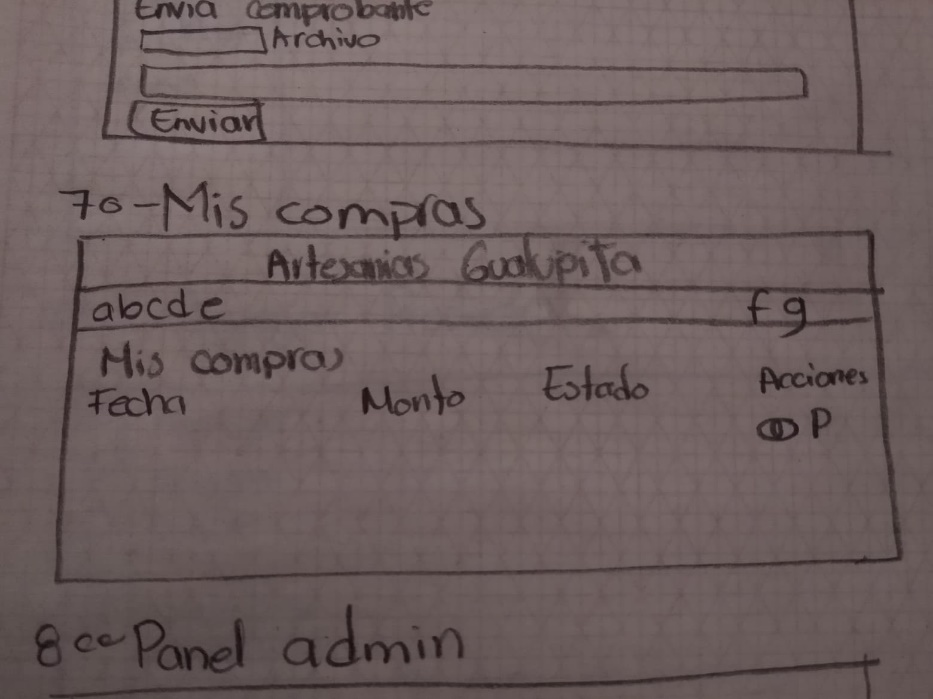 Envia Comprobante
Archivo
Enviar
7o-Mis compras
Artesanias Gualupita
abcde fg
Mis compras
Fecha Monto Estado Acciones
P
8 Panel admin